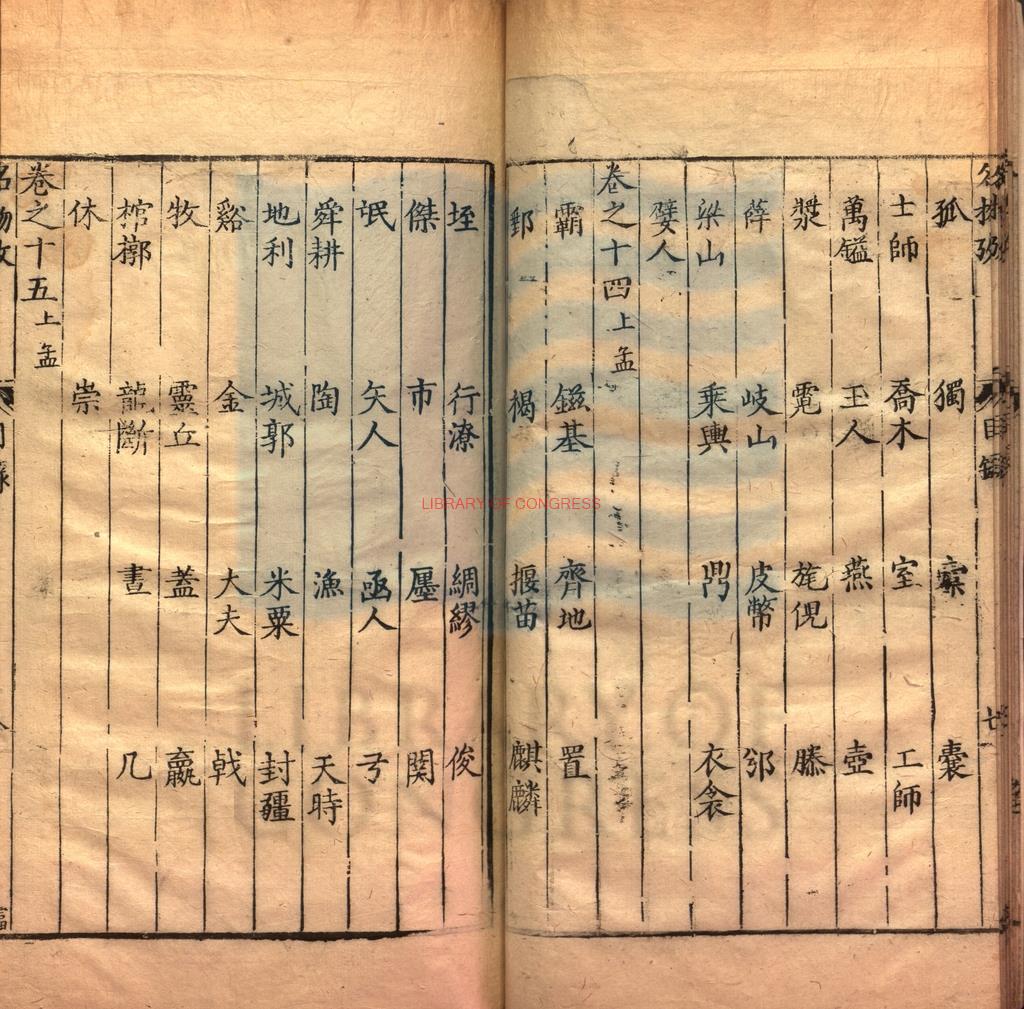 孤 獨 橐 囊
士師 喬木 室 工師
萬鎰 玉人 燕 壺
漿 霓 旄倪 滕
薛 岐山 皮幣 邠
梁山 乘輿 鼎 衣衾
嬖人
卷之十四上孟
霸 鎡基 齊地 置
郵 褐 揠苗 麒麟
垤 行潦 綢繆 俊
傑 市 廛 関
氓 矢人 函人 弓
舜耕 陶 漁 天時
地利 城郭 米粟 封疆
谿 金 大夫 戟
牧 靈丘 蓋 嬴
棺槨 龍斷 晝 几
休 崇
卷之十五上孟
LIBRARY OF CONGRESS